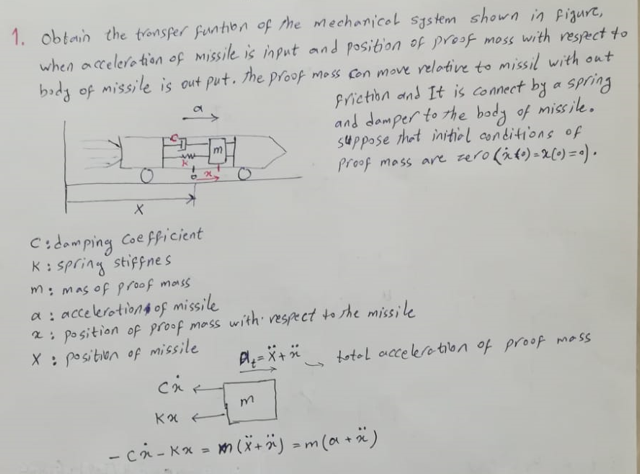 1. Obtain the transfer funtion of the mechanical system shown in figure,
when acceleration of missile is input and position of proof mass with respect to
body of missile is out put. the proof mass can move relative to missil with out
friction and It is connect by a spring
and damper to the body of missile.
suppose that initial conditions of
proof mass are zero (ẋ(0)=x(0)=0).
a
C
m
K
0
x
X
C: damping coefficient
K: spring stiffnes
m: mas of proof mass
a: acceleration of missile
x: position of proof mass with respect to the missile
X: position of missile
a_t = Ẍ + ẍ total acceleration of proof mass
Cẋ
m
Kx
-Cẋ - Kx = m(Ẍ+ẍ) = m(a+ẍ)